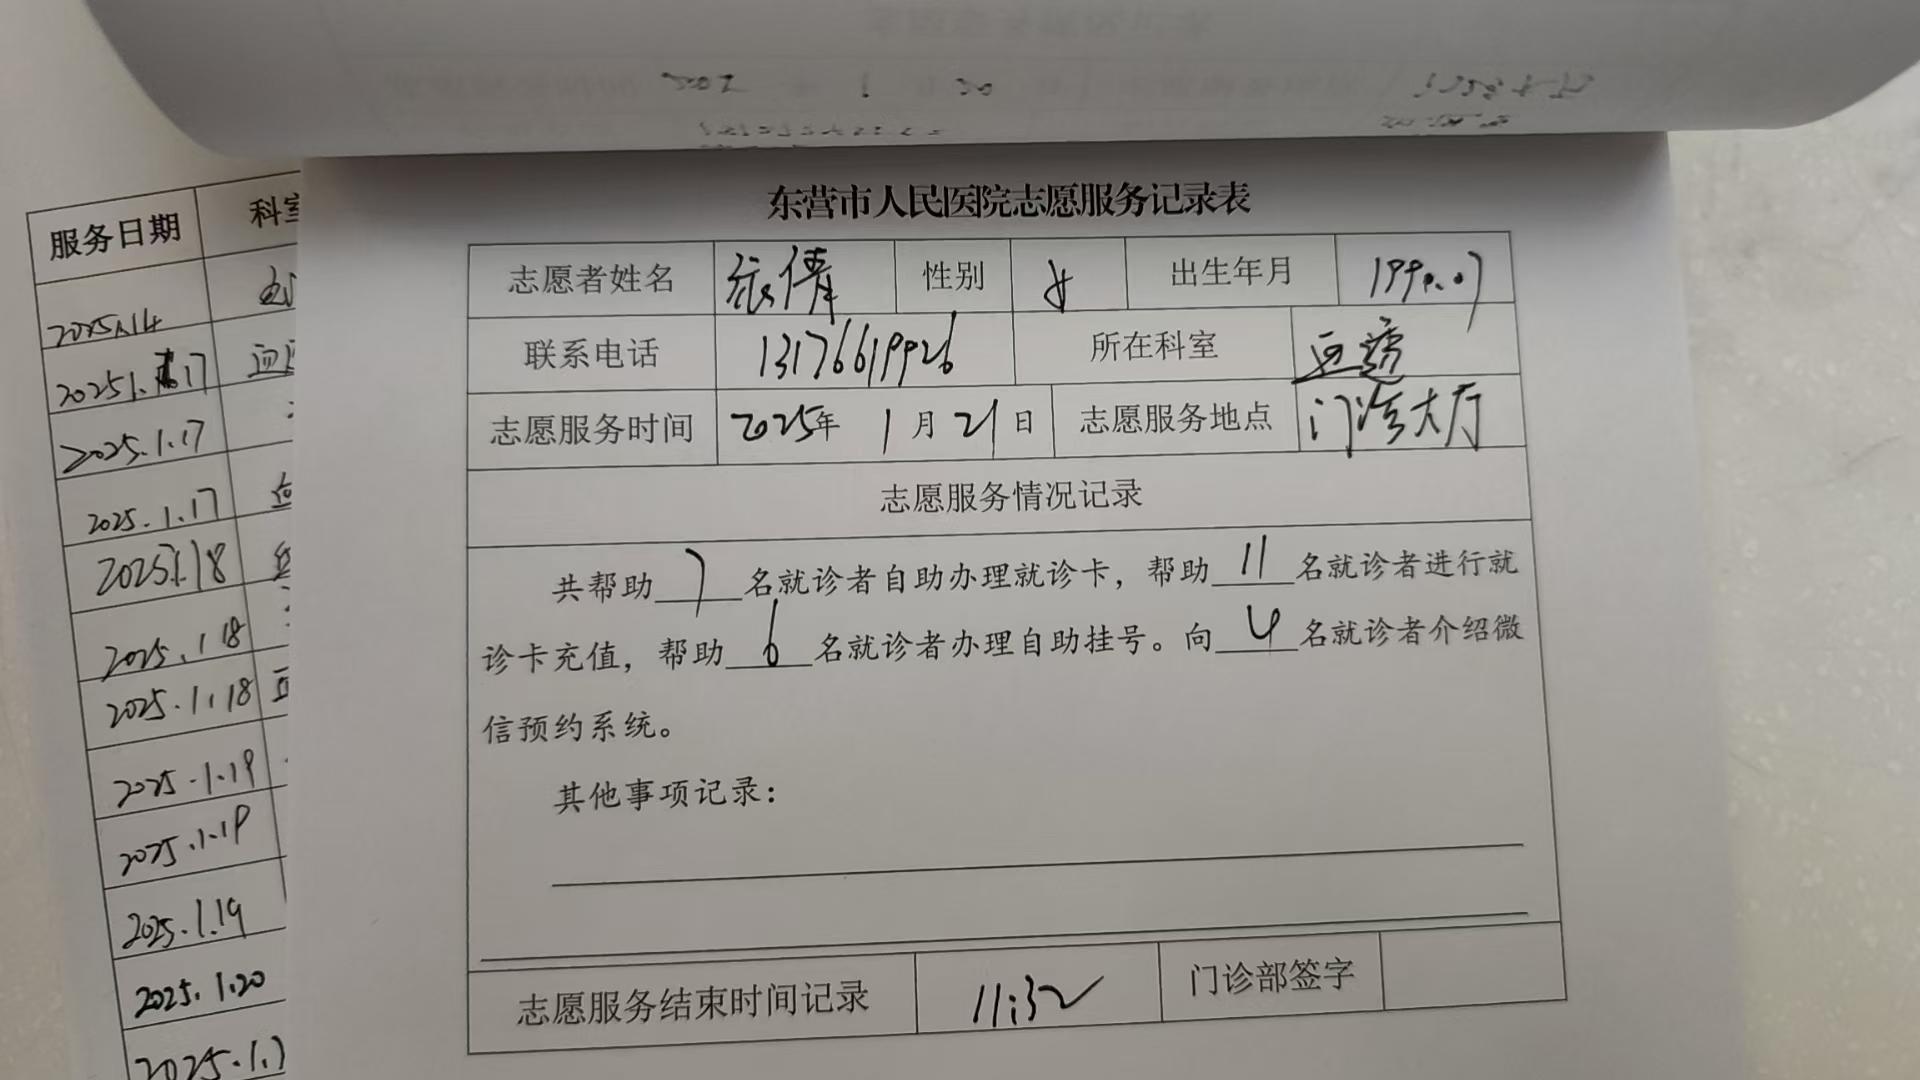 东营市人民医院志愿服务记录表
志愿者姓名 张倩 性别 女 出生年月 1990.07
联系电话 13176619926 所在科室 血透
志愿服务时间 2025年 1月21日 志愿服务地点 门诊大厅
志愿服务情况记录
共帮助 7 名就诊者自助办理就诊卡，帮助 11 名就诊者进行就
诊卡充值，帮助 6 名就诊者办理自助挂号。向 4 名就诊者介绍微
信预约系统。
其他事项记录：
志愿服务结束时间记录 11:32 门诊部签字
服务日期 科室
2025.1.14
20251.17
2025.1.17
2025.1.17
2025.1.18
2025.1.18
2025.1.18
2025.1.19
2025.1.19
2025.1.19
2025.1.20